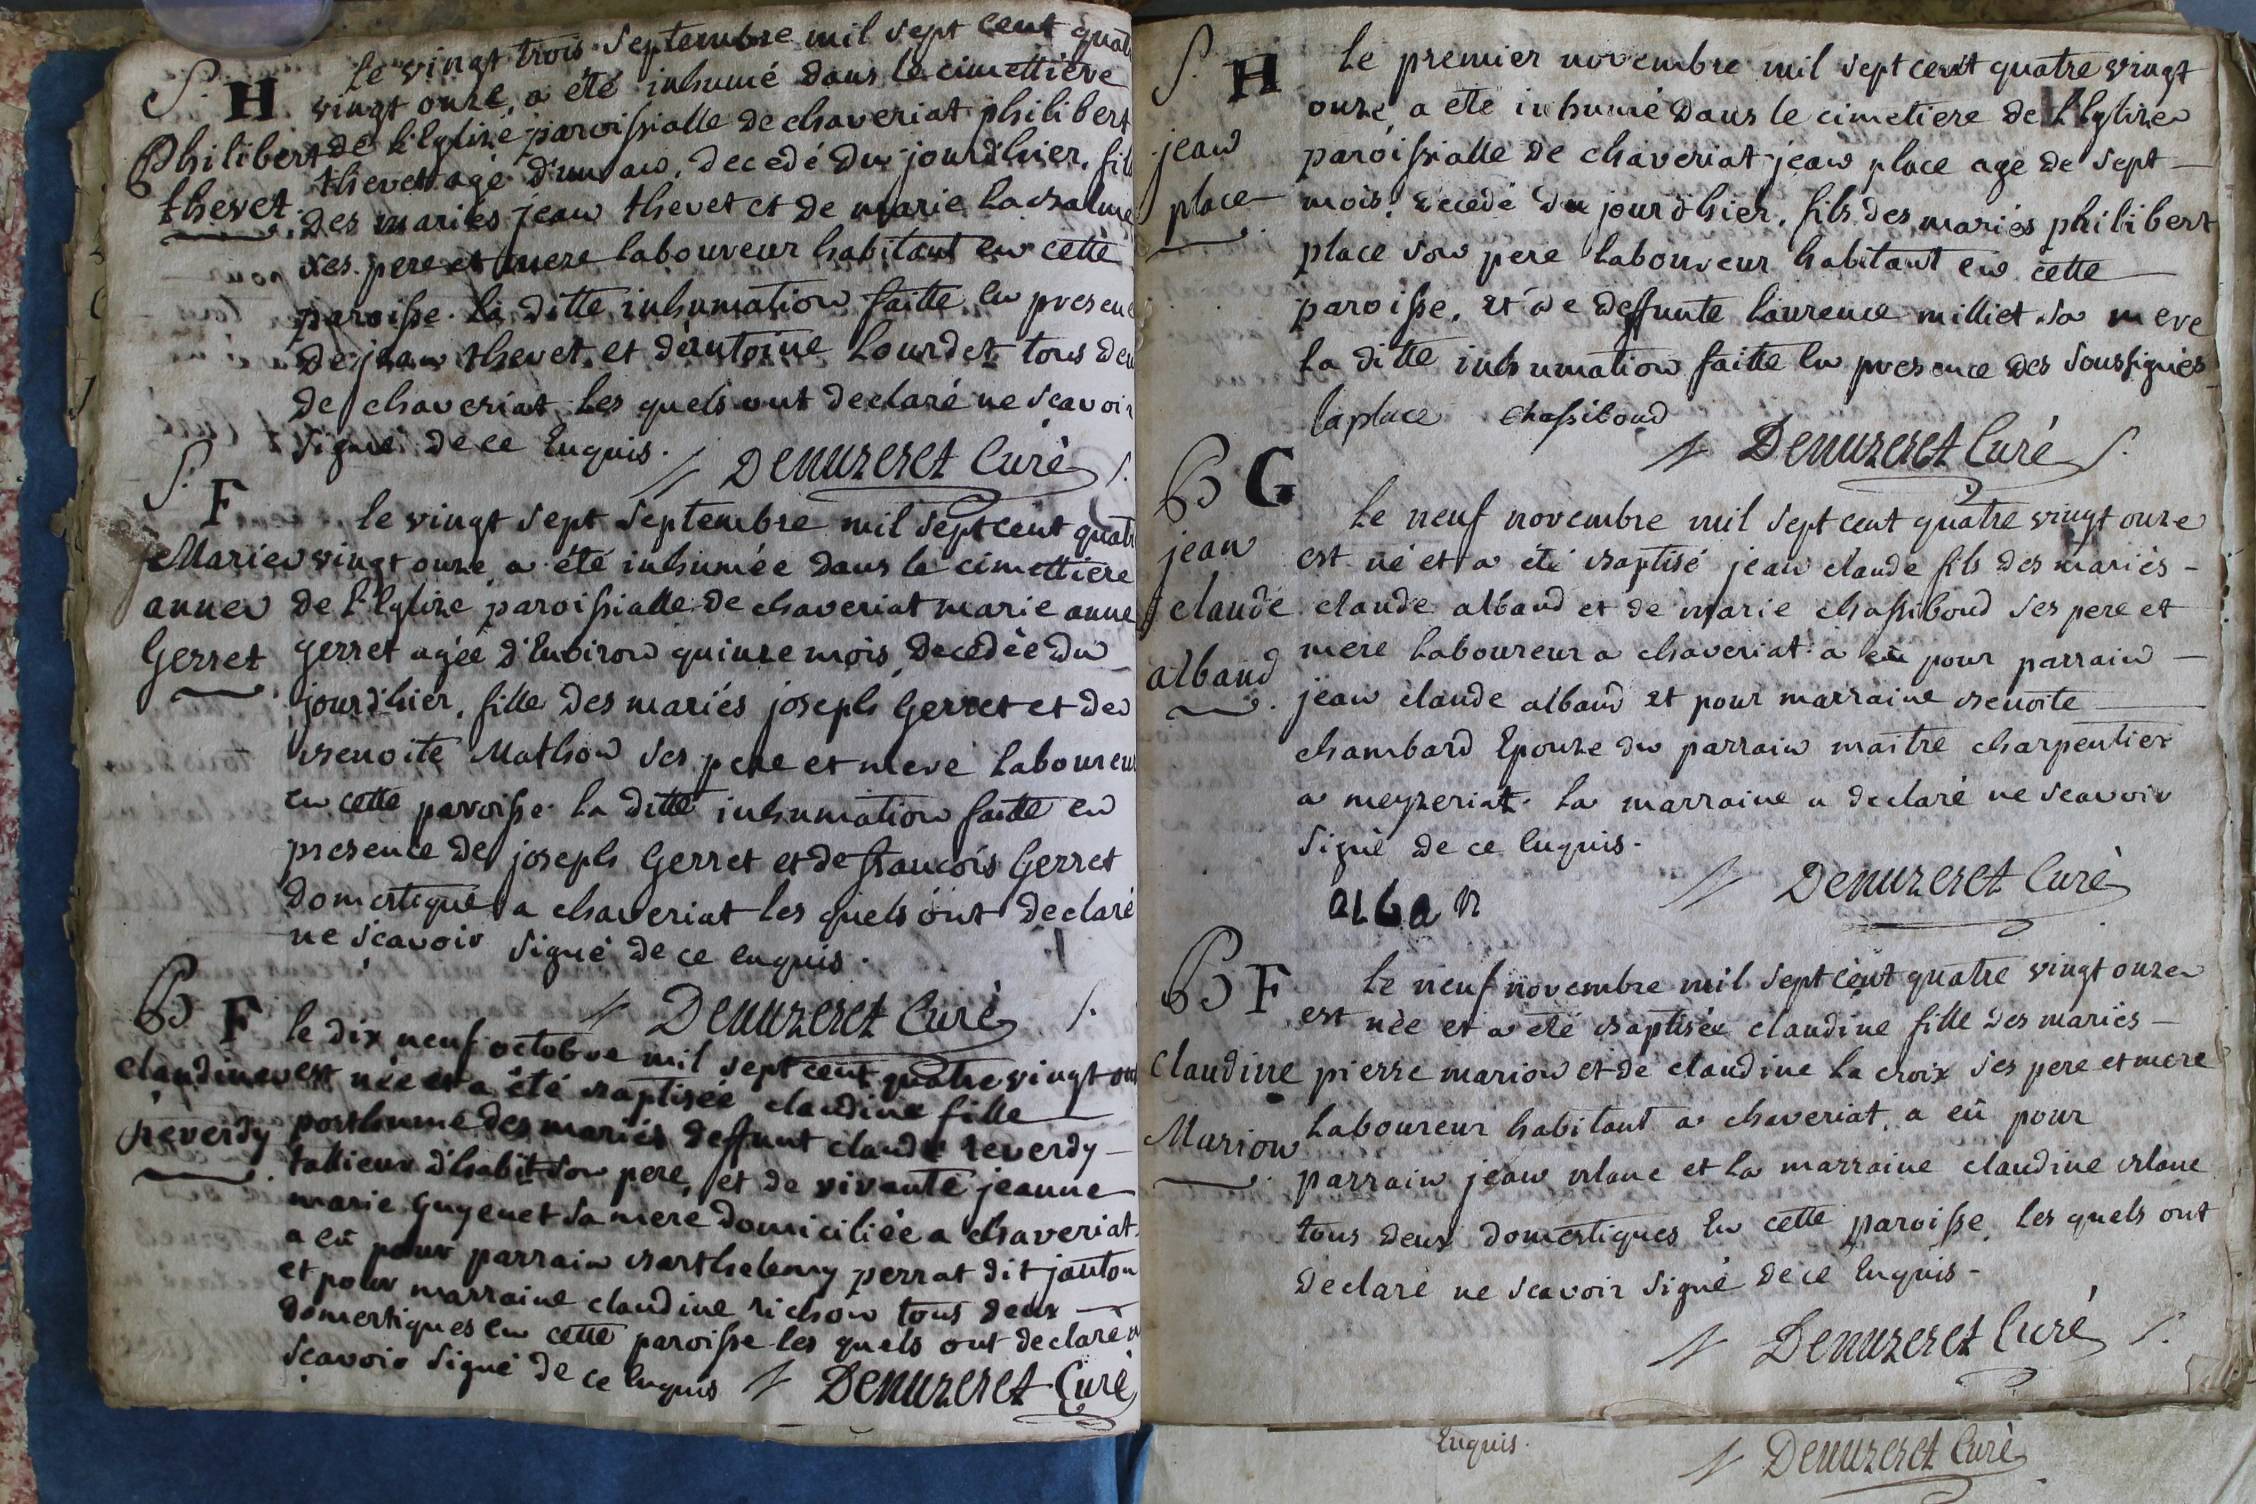 S. H
Philibert
thevet.
le vingt trois Septembre mil sept cent quatre
vingt onze, a été inhumé dans le cimettiere
de l'Eglize paroissialle de chaveriat philibert
thevet agé d'un an, decedé du jourdhier, fils
des mariés jean thevet et de marie
ses pere et mere laboureur habitant en cette
paroisse. la ditte inhumation faitte en presence
de jean thevet, et d'antoine Lourdet tous deux
de chaveriat les quels ont declaré ne scavoir
signé de ce Enquis. Denuzeret Curé S.
S. F
Marie
anne
Gerret
le vingt sept Septembre mil sept cent quatre
vingt onze a été inhumée dans le cimettiere
de l'Eglize paroissialle de chaveriat marie anne
gerret agée d'Environ quinze mois, decedée du
jourdhier, fille des mariés joseph Gerret et de
benoite Mathon ses pere et mere laboureur
en cette paroisse. la ditte inhumation faitte en
presence de joseph Gerret et de francois Gerret
domestique a chaveriat les quels ont declaré
ne scavoir signé de ce enquis.
Denuzeret Curé S.
B F
claudine
reverdy
le dix neuf octobre mil sept cent quatre vingt onze
est née et a été baptisée claudine fille
posthume des mariés deffunt claude reverdy
tallieur d'habit son pere, et de vivante jeanne
marie guyenet sa mere domiciliée a chaveriat.
a eû pour parrain barthelemy perrat dit janton
et pour marraine claudine richon tous deux
domestiques en cette paroisse les quels ont declaré ne
scavoir signé de ce Enquis Denuzeret Curé
S. H
jean
place
le premier novembre mil sept cent quatre vingt
onze, a été inhumé dans le cimetiere de l'Eglize
paroissialle de chaveriat jean place agé de sept
mois, décédé du jourdhier, fils des mariés philibert
place son pere laboureur habitant en cette
paroisse, et de deffunte laurence milliet sa mere
la ditte inhumation faitte en presence des soussignés
laplace chassiboud
Denuzeret Curé S.
B G
jean
claude
alband
le neuf novembre mil sept cent quatre vingt onze
est né et a été baptisé jean claude fils des mariés
claude alband et de marie chassiboud ses pere et
mere laboureur a chaveriat. a eû pour parrain
jean claude alband et pour marraine benoite
chambard Epouze du parrain maitre charpentier
a meyzeriat. la marraine a declaré ne scavoir
signé de ce Enquis.
alban
Denuzeret Curé
B F
claudine
Marion
le neuf novembre mil sept cent quatre vingt onze
est née et a été baptisée claudine fille des mariés
pierre marion et de claudine la croix ses pere et mere
laboureur habitant a chaveriat, a eû pour
parrain jean blanc et la marraine claudine blanc
tous deux domestiques en cette paroisse, les quels ont
declaré ne scavoir signé de ce Enquis
Denuzeret Curé S.
Enquis. Denuzeret Curé